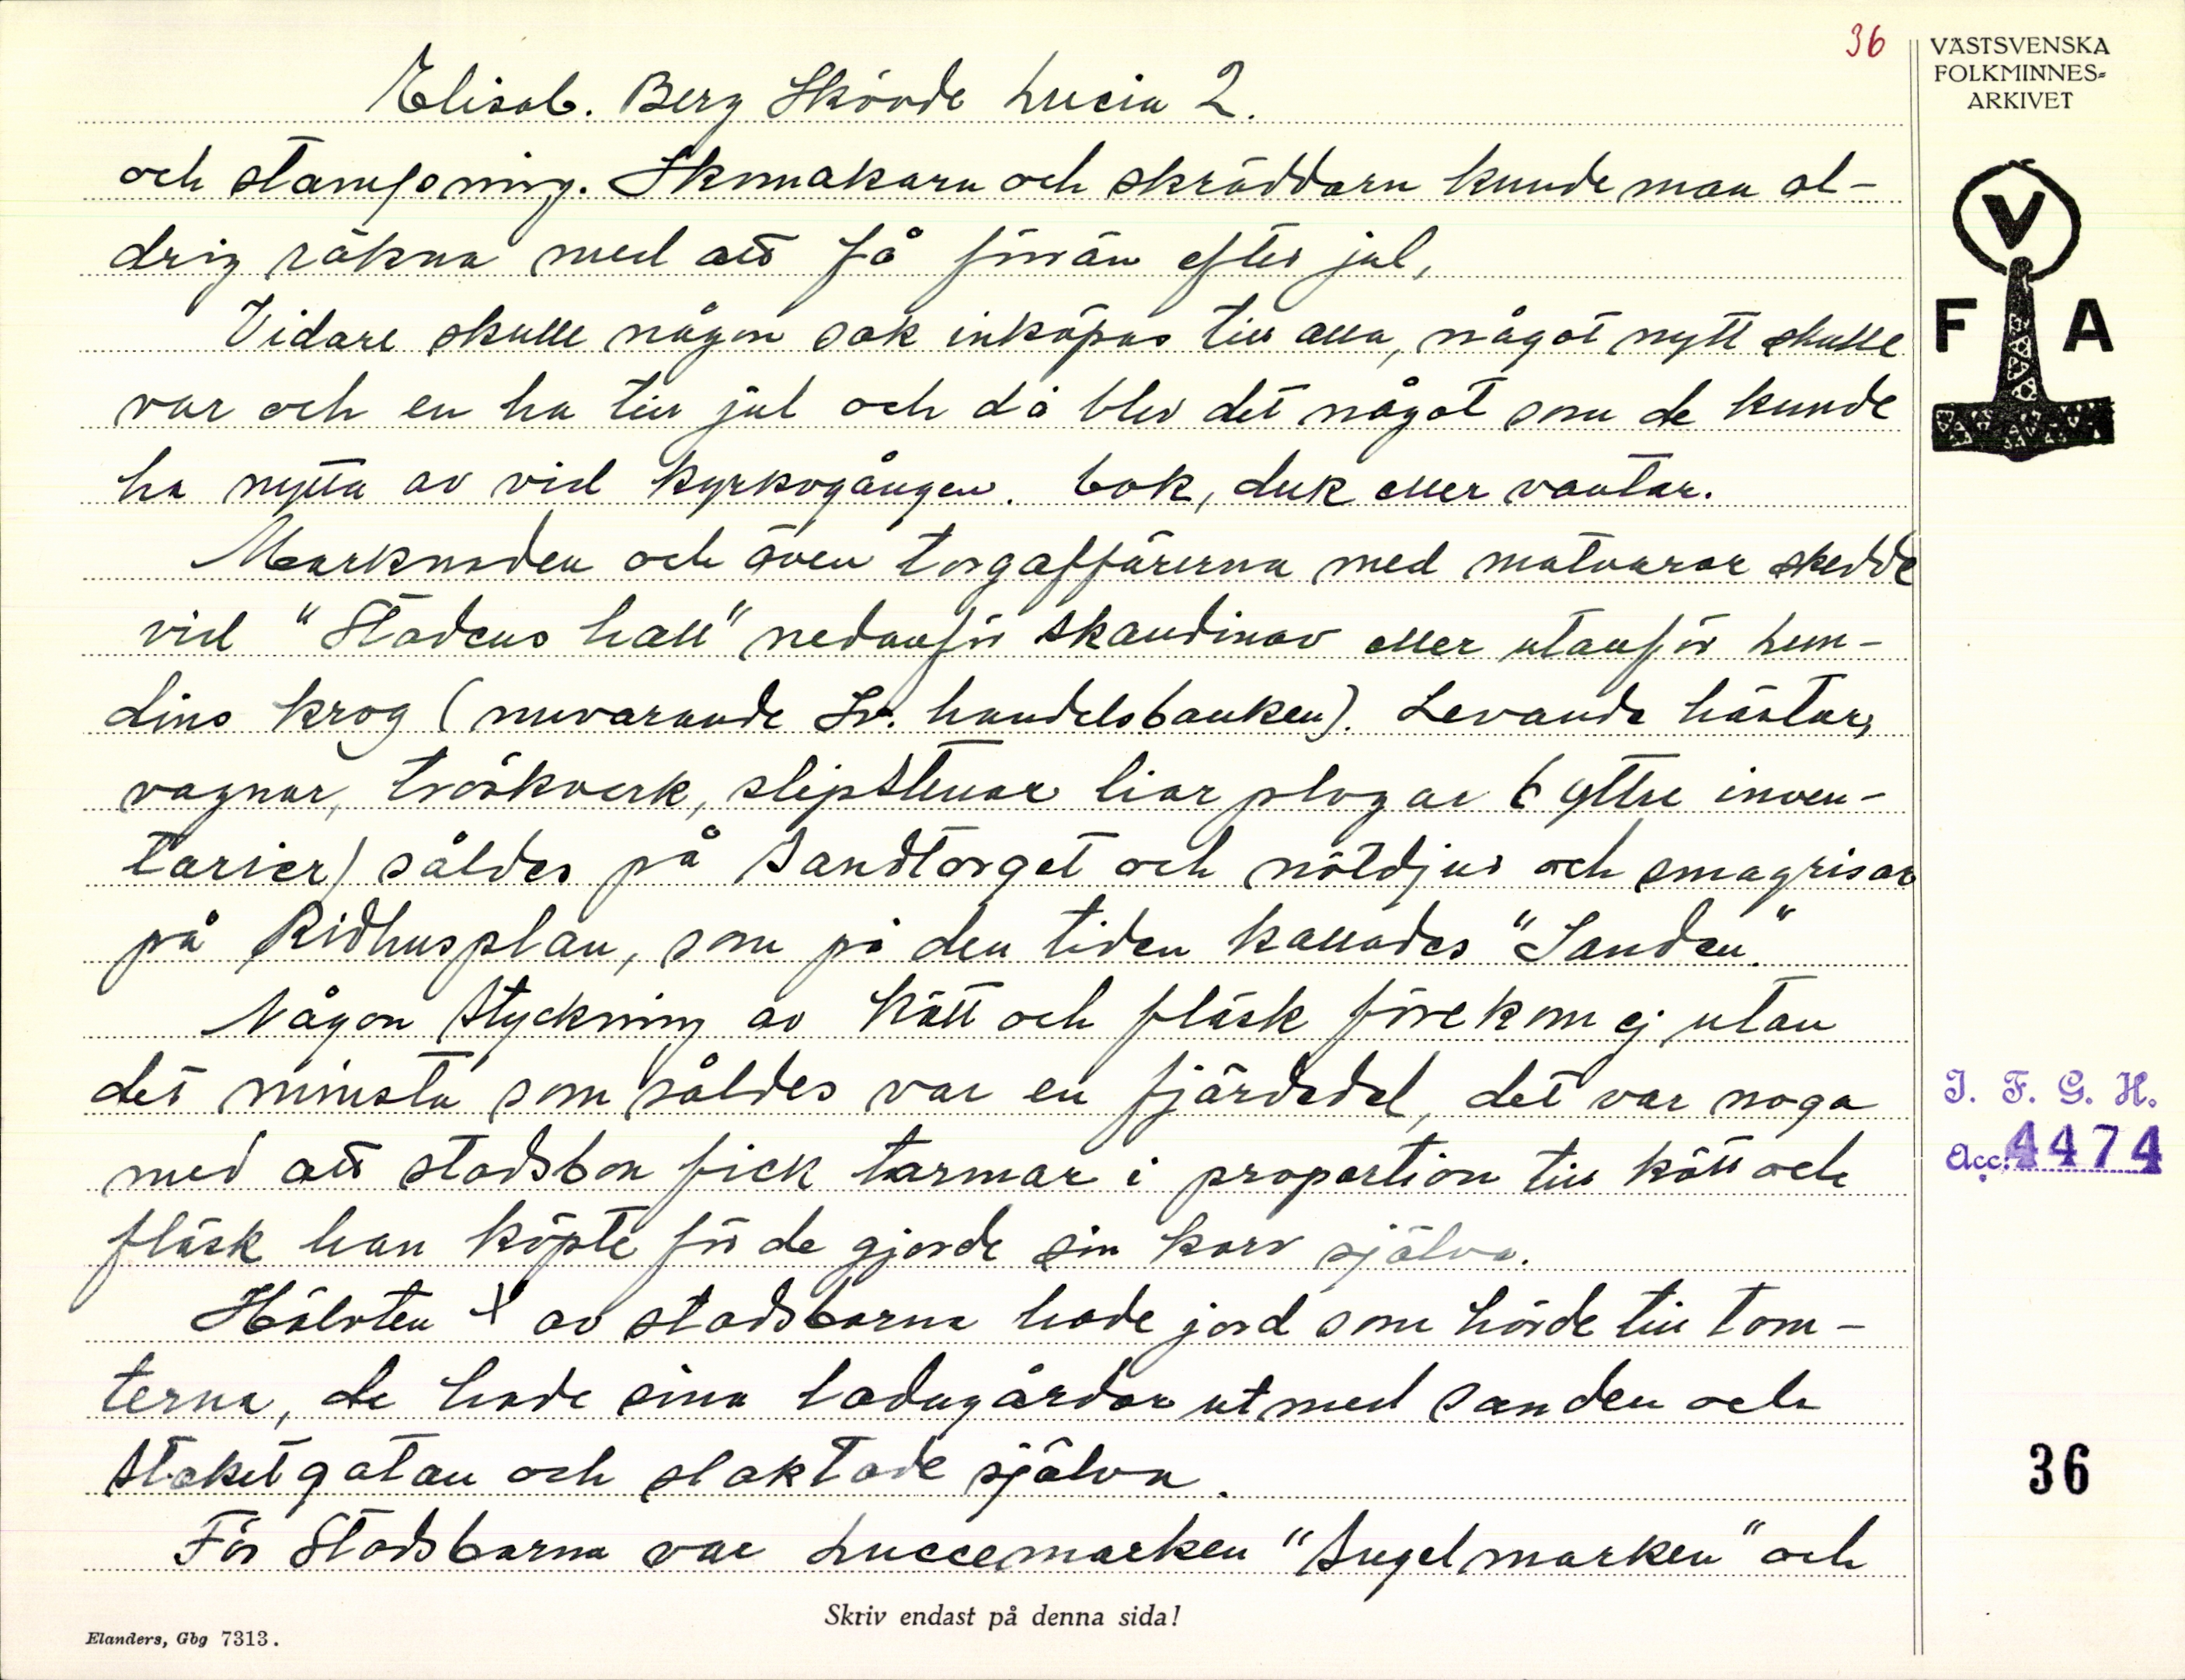 36
VÄSTSVENSKA
FOLKMINNES=
ARKIVET
Elisab. Berg Skövde Lucia 2.
och stampning. Skomakarn och skräddarn kunde man al-
drig räkna med att få förrän efter jul,
Vidare skulle någon sak inköpas till alla, något nytt skulle
var och en ha till jul och då blev det något som de kunde
ha nytta av vid kyrkogången. bok, duk eller vantar.
Marknaden och även torgaffärerna med matvaror skedde
vid "Stadens hall" nedanför Skandinav eller utanför Lun-
dins krog (nuvarande Sv. handelsbanken). Levande hästar,
vagnar, tröskverk, slipstenar liar plogar (yttre inven-
tarier) såldes på Sandtorget och nötdjur och smågrisar
på Ridhusplan, som på den tiden kallades "Sanden."
Någon styckning av kött och fläsk förekom ej utan
det minsta som såldes var en fjärdedel, det var noga
med att stadsbon fick tarmar i proportion till kött och
fläsk han köpte för de gjorde sin korv själva.
Hälvten X av stadsborna hade jord som hörde till tom-
terna, de hade sina ladugårdar utmed sanden och
Staketgatan och slaktade själva.
För Stadsborna var Luccemarken "Sugelmarken" och
V
F A
I. F. G. H.
Acc. 4474
36
Skriv endast på denna sida!
Elanders, Gbg 7313.